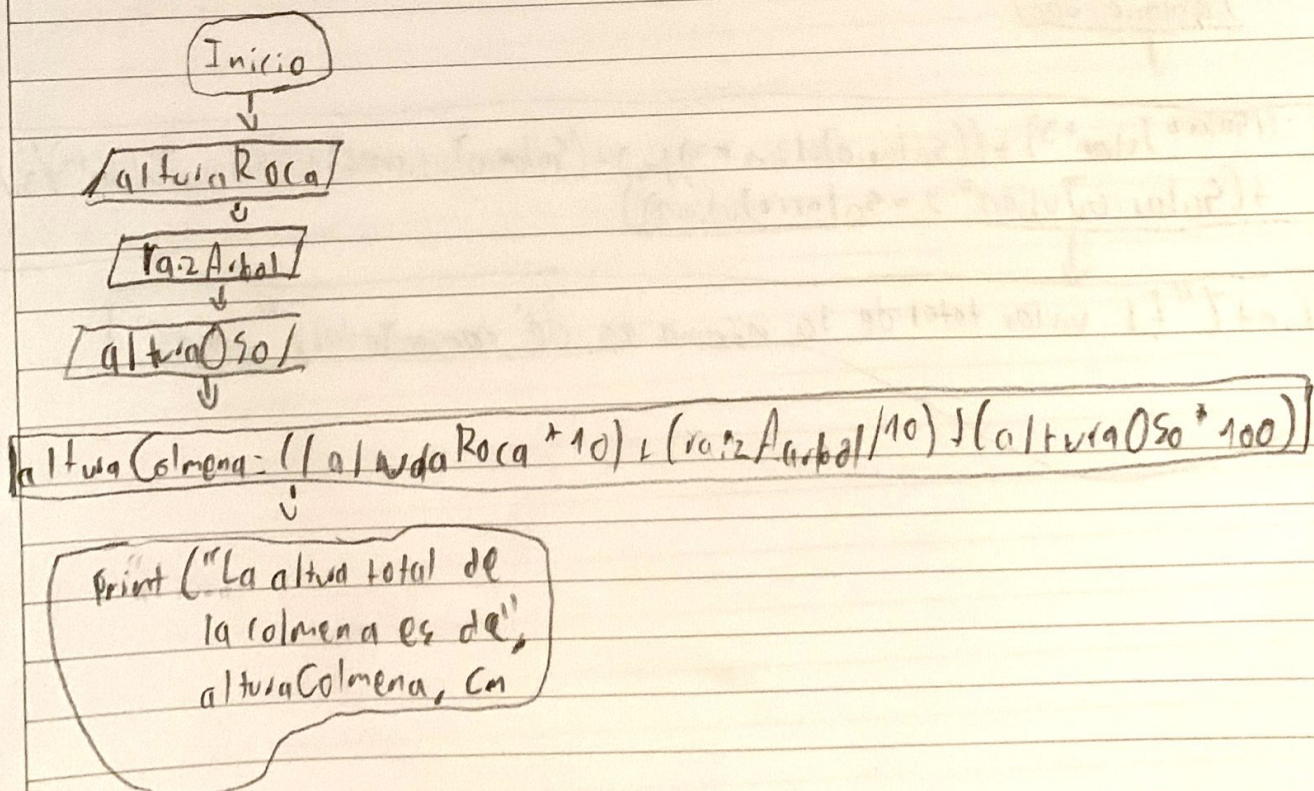 Inicio
alturaRoca
raizArbol
alturaOso
alturaColmena=((alturdaRoca*10)+(raizAarbol/10)+(alturaOso*100))
print ("La altura total de
la colmena es de",
alturaColmena, cm